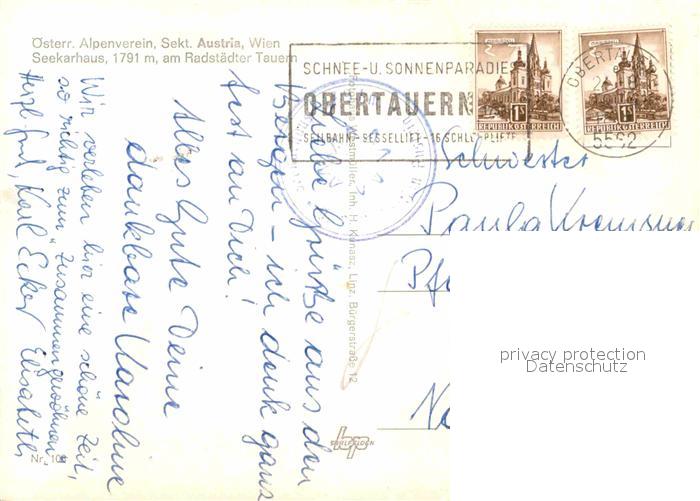 Österr. Alpenverein, Sekt. Austria, Wien
Seekarhaus, 1791 m, am Radstädter Tauern
SCHNEE-U. SONNENPARADIES
OBERTAUERN
SEILBAHN-SESSELLIFT-16 SCHLEPPLIFTE
REPUBLIK ÖSTERREICH
REPUBLIK ÖSTERREICH
OBERTAUERN
5562
Schwester
Paula
Liebe Grüße aus den
Bergen - ich denk ganz
fest an Dich!
Alles Gute Deine
dankbare Karoline
Wir verleben hier eine schöne Zeit,
so richtig zum "Zusammengewöhnen"
Karl Ecker Elisabeth
Inh. H. Konasz, Linz, Bürgerstraße 12
Nr. 10
privacy protection
Datenschutz